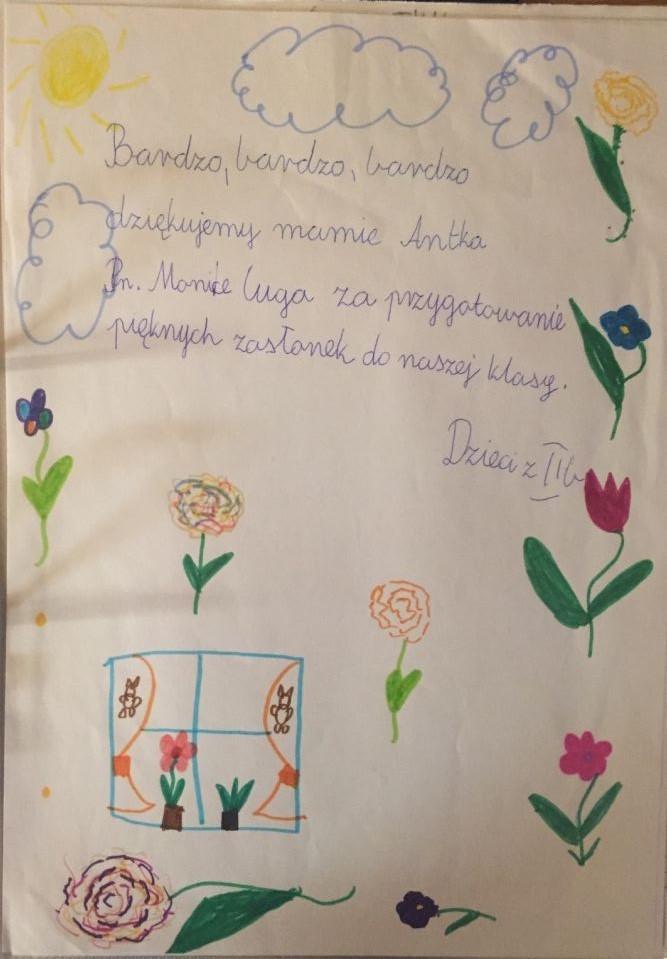 Bardzo, bardzo, bardzo
dziękujemy mamie Antka
Pn. Monice Cuga za przygotowanie
pięknych zasłonek do naszej klasy.
Dzieci z IIb